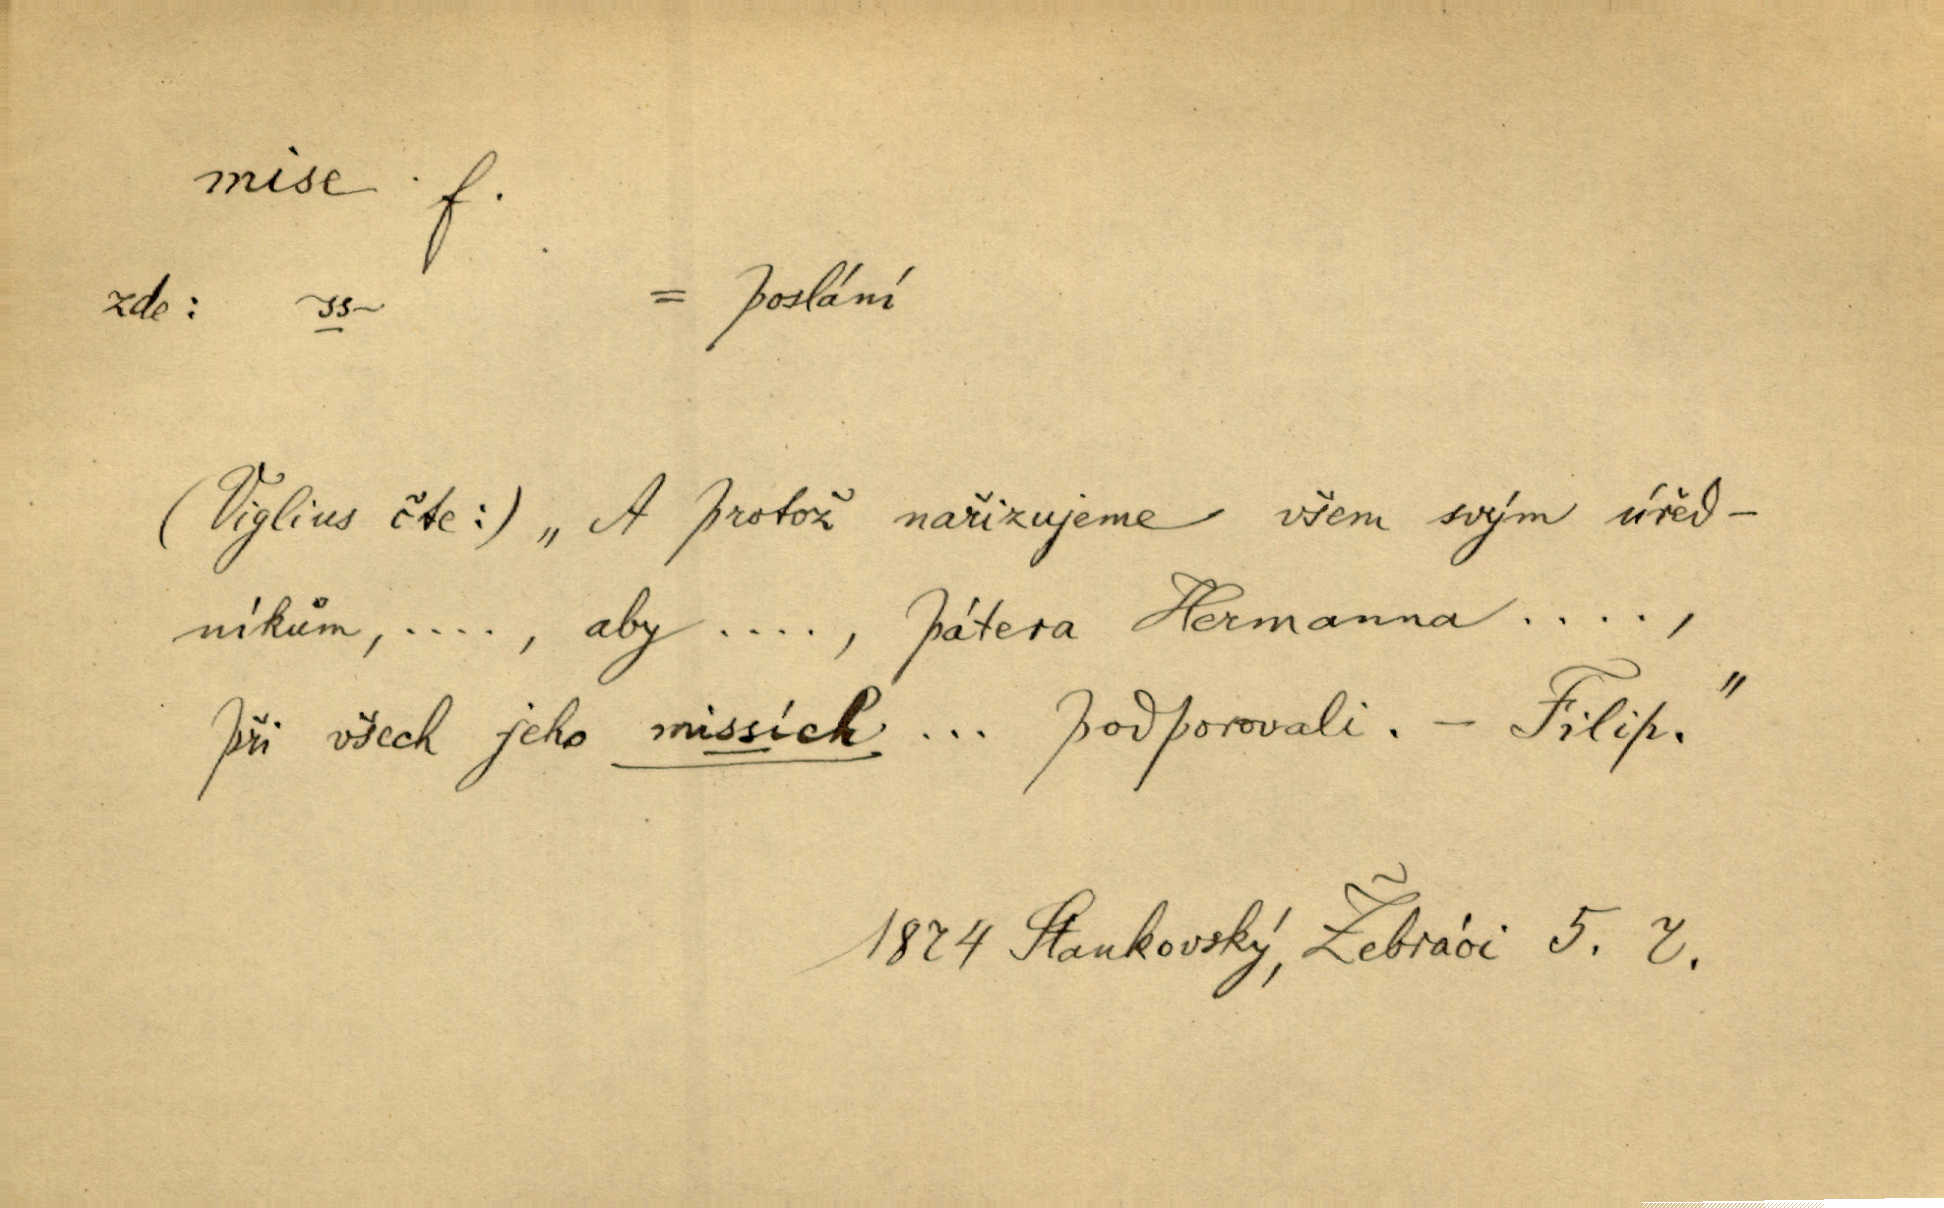 mise f.
zde: ~ss~ = poslání
(Viglius čte:) „A protož nařizujeme všem svým úřed-
níkům, ...., aby ...., pátera Hermanna ....,
při všech jeho missích ... podporovali. — Filip."
1874 Stankovský, Žebráci 5. 7.